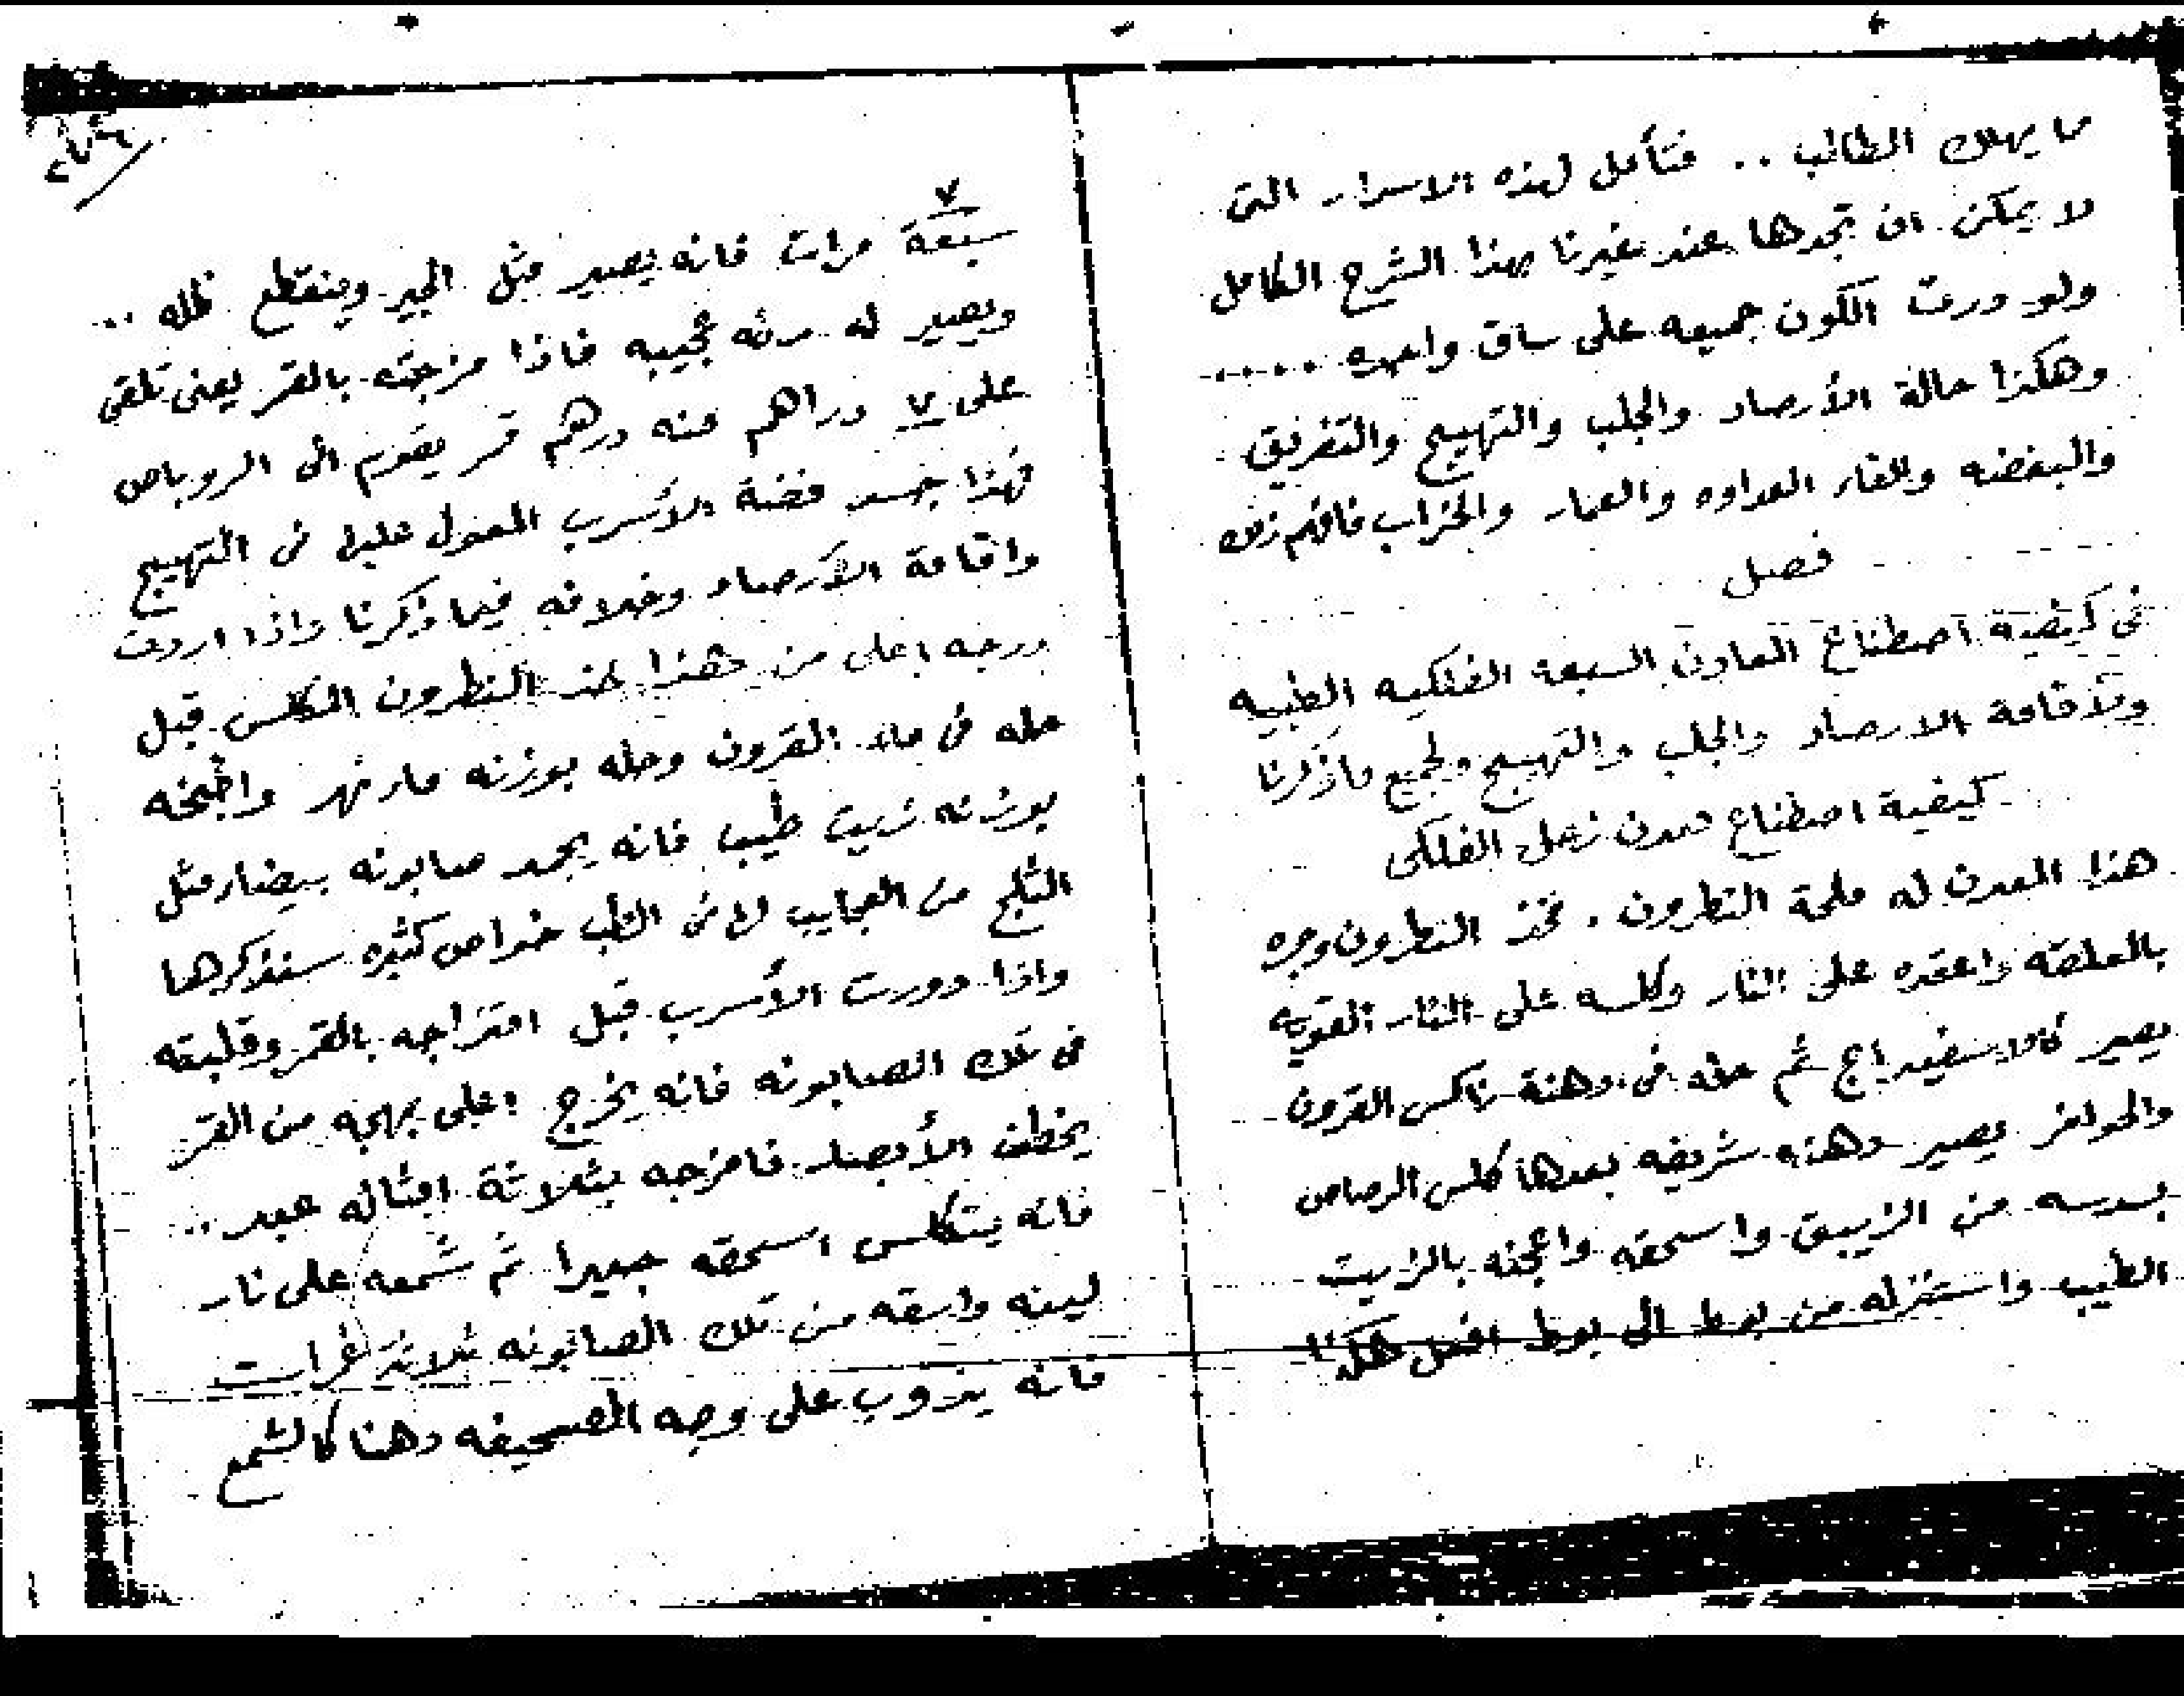 ما يهلك الطالب .. فتأمل لهذه الاسرار التى
لا يمكن ان تجدها عند غيرنا بهذا الشرح الكامل
ولو درت الكون جميعه على ساق واحده ....
وهكذا حالة الأرصاد والجلب والتهييج والتفريق
والبغضه والقاء العداوه والعمار والخراب فافهم ذلك
فصل
فى كيفية اصطناع المعادن السبعه الفلكيه الطبيه
ولأقامة الارصاد والجلب والتهييج ولجميع ماذكرنا
كيفية اصطناع معدن زحل الفلكى
هذا المعدن له ملحة النطرون . تخذ النطرون وجره
بالعلقه واعقده على النار وكلسه على النار القويه
يصير كالاسفيداج ثم حله فى دهنة ناكس القرون
والحوافر يصير دهنه شريفه بعدها كلس الرصاص
بسدسه من الزيبق واسحقه واعجنه بالزيت
الطيب واستنزله من بوط الى بوط افعل هكذا
٧
سبعة مرات فانه يصير مثل الجير وينقطع ظله ..
ويصير له رنه عجيبه فاذا مزجته بالقمر يعنى تلقى
على ٧ دراهم منه درهم قمر يقوم الى الروباص
فهذا جسد فضة الأسرب المعول عليها فى التهييج
واقامة الأرصاد وخلافه فيما ذكرنا واذا اردت
درجه اعلى من هذا خذ النطرون المكلس قبل
حله فى ماء القرون وحله بوزنه ماء نهر واطبخه
بوزنه زيت طيب فانه يجمد صابونه بيضاء مثل
الثلج من العجايب لها فى الطب خواص كثيره سنذكرها
واذا دورت الأسرب قبل امتزاجه بالقمر وقلبته
فى تلك الصابونه فانه يخرج اعلى بهجه من القمر
يخطف الأبصار فامزجه بثلاثة امثاله عبد ..
فانه يتكلس اسحقه جيدا ثم شمعه على نار
لينه واسقه من تلك الصابونه ثلاثة مرات
فانه يذوب على وجه الصحيفه دهنا كالشمع